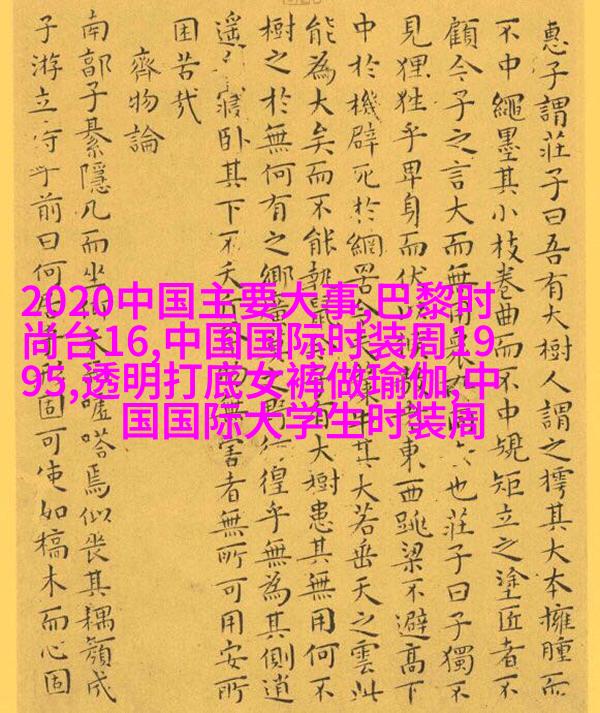 2020中国主要大事,巴黎时
尚台16,中国国际时装周19
95,透明打底女裤做瑜伽,中
国国际大学生时装周
惠子謂莊子曰吾有大樹人謂之樗其大本擁腫而
不中繩墨其小枝卷曲而不中規矩立之塗匠者不
顧今子之言大而無用也莊子曰子獨不
見狸狌乎卑身而伏東西跳梁不避高下
中於機辟死於網罟其大若垂天之雲此
能為大矣而不能執鼠有大樹患其無用何不
樹之於無何有之鄉徨乎無為其側逍
遙寢臥其下不夭無害者無所可用安所
困苦哉
齊物論
南郭子綦隱几而坐噓嗒焉似喪其耦顏成
子游立侍乎前曰何固可使如槁木而心固